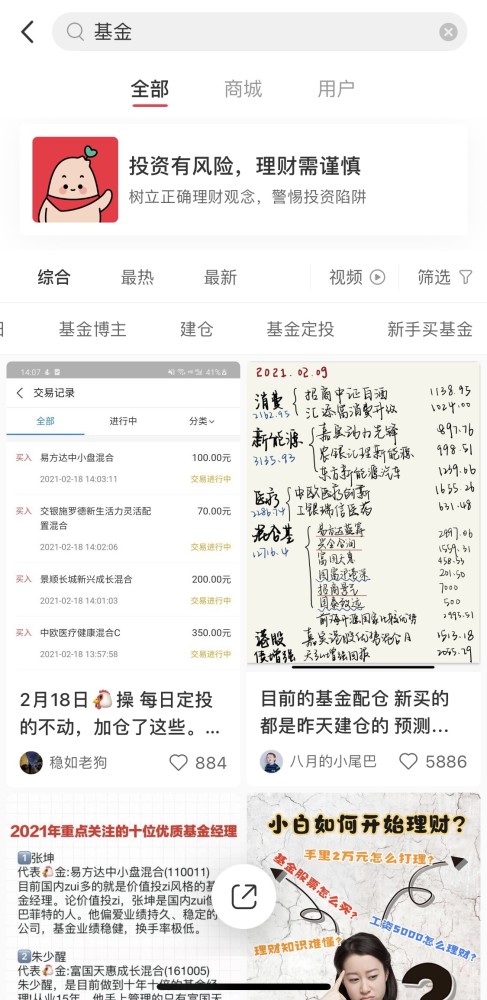 基金
全部
商城
用户
投资有风险，理财需谨慎
树立正确理财观念，警惕投资陷阱
综合
最热
最新
视频
筛选
基金博主
建仓
基金定投
新手买基金
14:07
41%
交易记录
全部
进行中
分类
买入
易方达中小盘混合
100.00元
2021-02-18 14:03:11
交易进行中
买入
交银施罗德新生活力灵活配
置混合
70.00元
2021-02-18 14:02:06
交易进行中
买入
景顺长城新兴成长混合
200.00元
2021-02-18 14:01:03
交易进行中
买入
中欧医疗健康混合C
350.00元
2021-02-18 13:57:58
交易进行中
2月18日🐔操 每日定投
的不动，加仓了这些。...
稳如老狗
884
2021.02.09
消费
2162.95
招商中证白酒
1138.95
汇添富消费升级
1024.00
新能源
3135.93
嘉实动力先锋
897.76
农银汇理新能源
998.51
东方新能源汽车
1239.66
医疗
中欧医疗创新
1655.26
工银瑞信医药
631.48
混合基
12716.4
易方达蓝筹
2897.06
1559.31
富国天惠
458.53
201.50
7000
500
2995.51
港股
1513.18
债增强
2055.29
目前的基金配仓 新买的
都是昨天建仓的 预测...
八月的小尾巴
5886
2021年重点关注的十位优质基金经理
1张坤
代表🐔金:易方达中小盘混合(110011)
目前国内zui多的就是价值投zi风格的基
金经理。论价值投zi，张坤是国内zui像
巴菲特的人。他偏爱业绩持久、稳定的
公司，基金业绩稳健，换手率极低。
2朱少醒
代表🐔金:富国天惠成长混合(161005)
朱少醒，是目前做到十年十倍的基金经
小白如何开始理财？
手里2万元怎么打理？
基金股票怎么买？
工资5000怎么理财？
理财知识难懂？